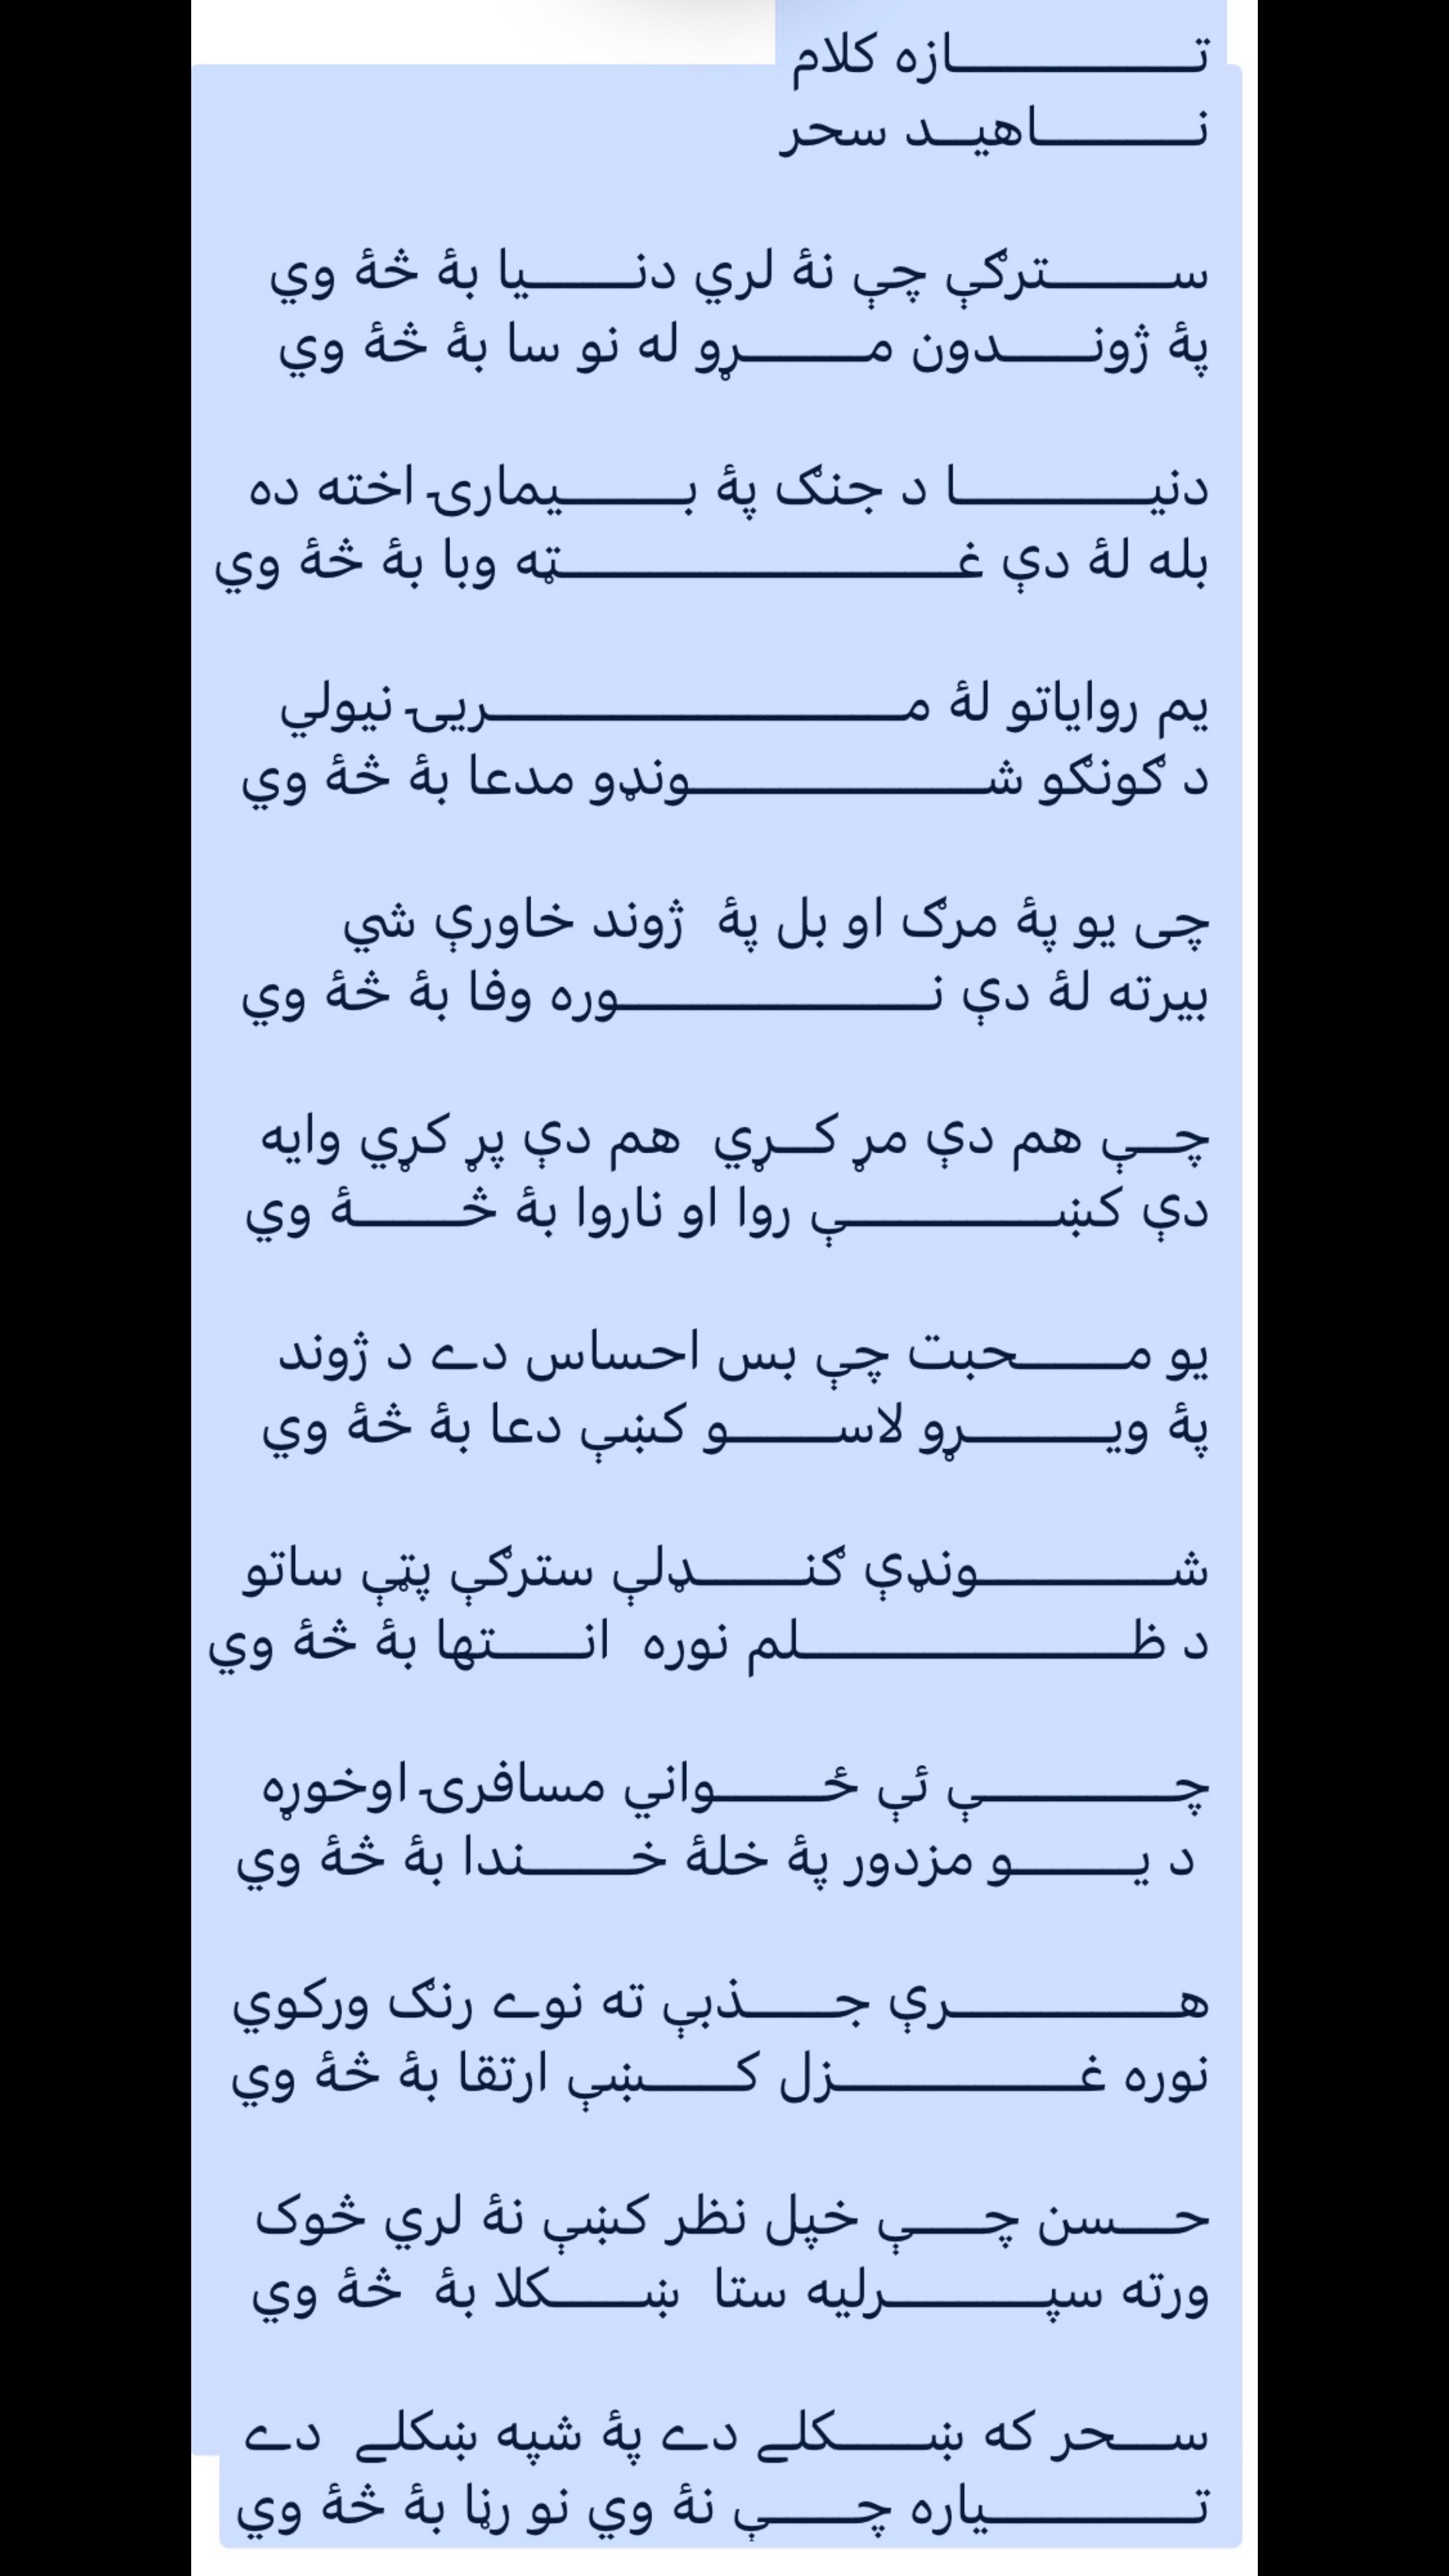 تـــــــــــــازه کلام
نـــــــــاهیــد سحر
ســـــــترګې چې نۀ لري دنــــــیا بۀ څۀ وي
پۀ ژونـــــدون مـــــــړو له نو سا بۀ څۀ وي
دنیـــــــــــا د جنګ پۀ بـــــــیمارۍ اخته ده
بله لۀ دې غــــــــــــــــــــــټه وبا بۀ څۀ وي
یم روایاتو لۀ مـــــــــــــــــــــــریۍ نیولي
د ګونګو شـــــــــــــــــــونډو مدعا بۀ څۀ وي
چی یو پۀ مرګ او بل پۀ  ژوند خاورې شي
بیرته لۀ دې نــــــــــــــــــوره وفا بۀ څۀ وي
چـــې هم دې مړ کـــړي  هم دې پړ کړي وایه
دې کښـــــــــــــې روا او ناروا بۀ څـــــــۀ وي
یو مـــــــحبت چې بس احساس دے د ژوند
پۀ ویـــــــــړو لاســـــــو کښې دعا بۀ څۀ وي
شـــــــــــونډې ګنــــــډلې سترګې پټې ساتو
د ظـــــــــــــــــــلم نوره  انـــــتها بۀ څۀ وي
چـــــــــــــې ئې ځــــــواني مسافرۍ اوخوړه
د یـــــــــو مزدور پۀ خلۀ خــــــندا بۀ څۀ وي
هـــــــــــــرې جــــــذبې ته نوے رنګ ورکوي
نوره غـــــــــــــــزل کـــــــښې ارتقا بۀ څۀ وي
حـــــسن چــــې خپل نظر کښې نۀ لري څوک
ورته سپـــــــــــرلیه ستا  ښــــــکلا بۀ  څۀ وي
ســـــحر که ښـــــــکلے دے پۀ شپه ښکلے  دے
تــــــــــــیاره چـــــې نۀ وي نو رڼا بۀ څۀ وي